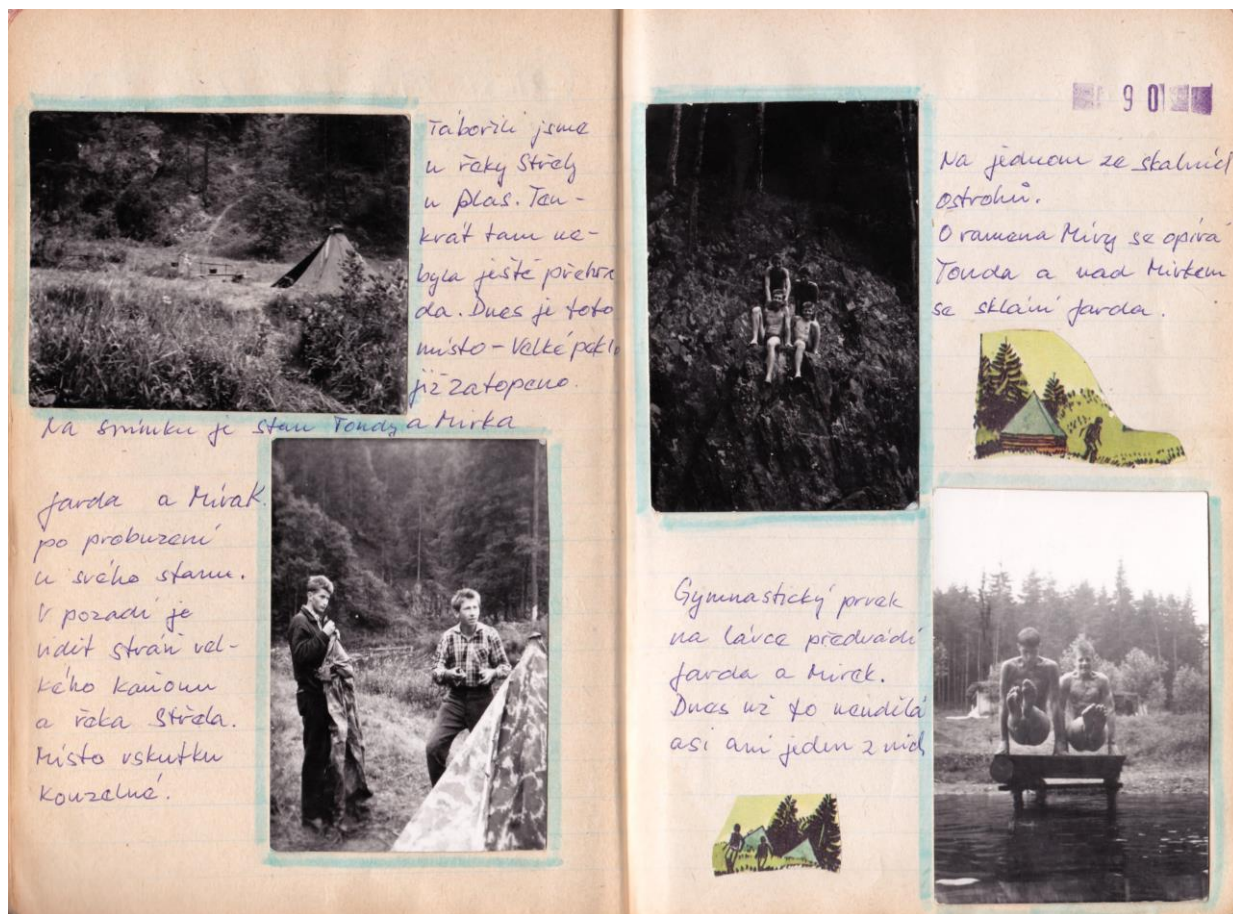 Tábořili jsme
u řeky Střely
u Plas. Ten-
krát tam ne-
byla ještě přehra
da. Dnes je toto
místo - Velké peklo
již zatopeno.
Na snímku je stan Tondy a Mirka
Jarda a Mirak
po probuzení
u svého stanu.
V pozadí je
vidět stráň vel-
kého kaňonu
a řeka Střela.
Místo vskutku
kouzelné.
90
Na jednom ze skalních
ostrohů.
O ramena Míry se opírá
Tonda a nad Mirkem
se sklání Jarda.
Gymnastický prvek
na lávce předvádí
Jarda a Mirek.
Dnes už to neudělá
asi ani jeden z nich